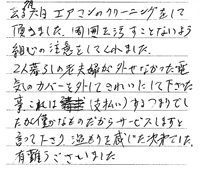 先日エアコンのクリーニングをして
頂きました。周囲を汚すことないよう
細心の注意をしてくれました。
2人暮らしの老夫婦が外せなかった電
気のカバーを外してきれいにして下さった
事、これは(支払い)するつもりでし
たが僅かなものだからサービスしますと
言って下さり、温もりを感じた次第でした。
有難うございました